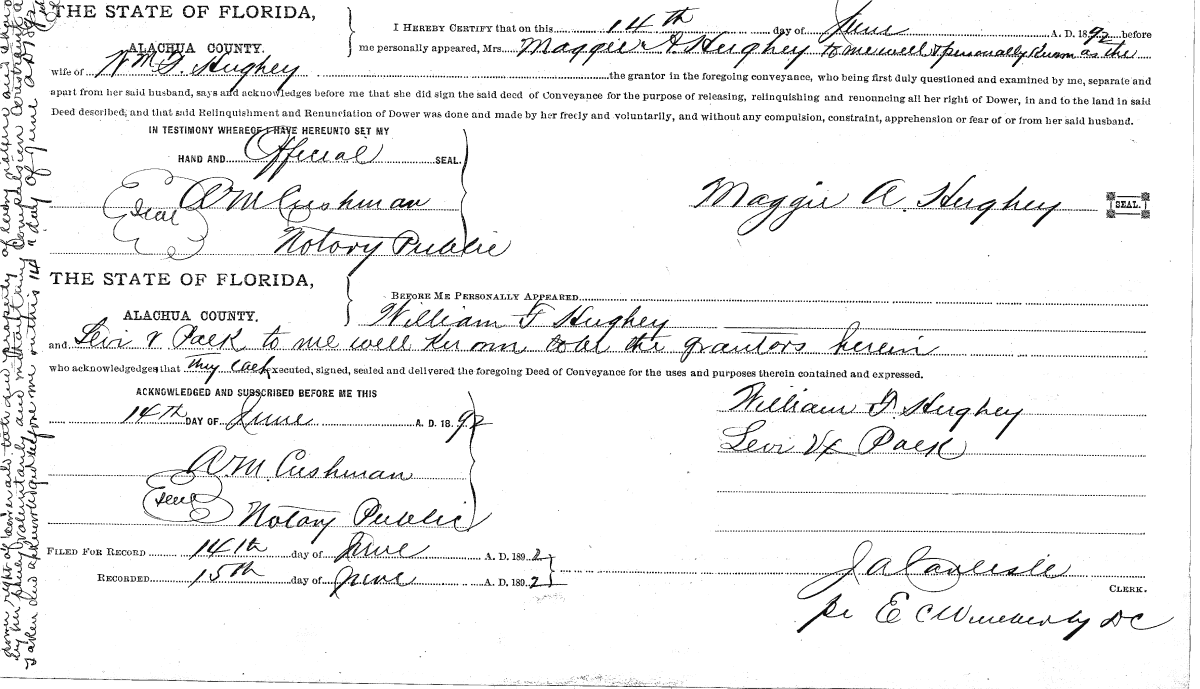 THE STATE OF FLORIDA,
ALACHUA COUNTY.
I HEREBY CERTIFY that on this 14th day of June A. D. 1892 before
me personally appeared, Mrs. Maggie A Hughey to me well & personally known as the
wife of Wm F. Hughey the grantor in the foregoing conveyance, who being first duly questioned and examined by me, separate and
apart from her said husband, says and acknowledges before me that she did sign the said deed of Conveyance for the purpose of releasing, relinquishing and renouncing all her right of Dower, in and to the land in said
Deed described; and that said Relinquishment and Renunciation of Dower was done and made by her freely and voluntarily, and without any compulsion, constraint, apprehension or fear of or from her said husband.
IN TESTIMONY WHEREOF I HAVE HEREUNTO SET MY
HAND AND Official SEAL.
Seal A M Cushman
Notary Public
Maggie A. Hughey SEAL.
THE STATE OF FLORIDA,
ALACHUA COUNTY.
BEFORE ME PERSONALLY APPEARED
William F Hughey
and Levi Pack to me well known to be the grantors herein
who acknowledges that they each executed, signed, sealed and delivered the foregoing Deed of Conveyance for the uses and purposes therein contained and expressed.
ACKNOWLEDGED AND SUBSCRIBED BEFORE ME THIS
14th DAY OF June A. D. 18.92
A M Cushman
Seal Notary Public
William F. Hughey
Levi Pack
FILED FOR RECORD 14th day of June A. D. 1892
RECORDED 15th day of June A. D. 1892
J A Carlisle
CLERK.
pr E C Wimberly DC